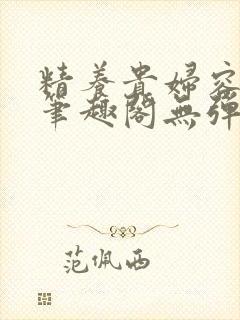 精養貴婦容
筆趣閣無彈
范佩西